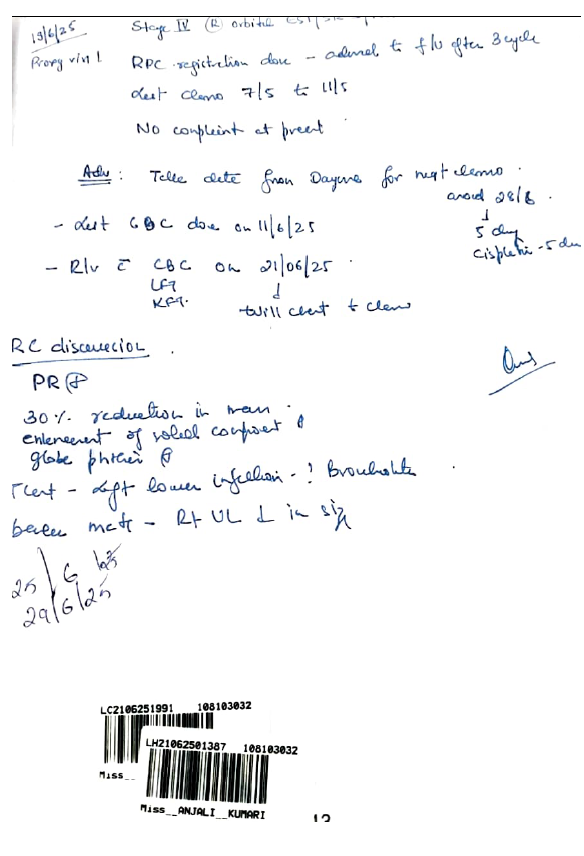 19/6/25
Stage IV (R) orbital
RPC registration done - advised to f/u after 3 cycle
Last chemo 7/5 to 11/5
No complaint at present
Adv: Take date from for next chemo
around 28/6
↓
5 day
Cisplatin - 5 day
- Last CBC done on 11/6/25
- R/v c̄ CBC on 21/06/25
LFT
KFT
↓
to chemo
RC discussion
PR ⊕
30% reduction in
of solid
globe
- Left lower infection - ? Bronchiolitis
mets - Rt UL ↓ in size
29/6/25
LC2106251991 108103032
LH21062501387 108103032
Miss__
Miss__ANJALI__KUMARI